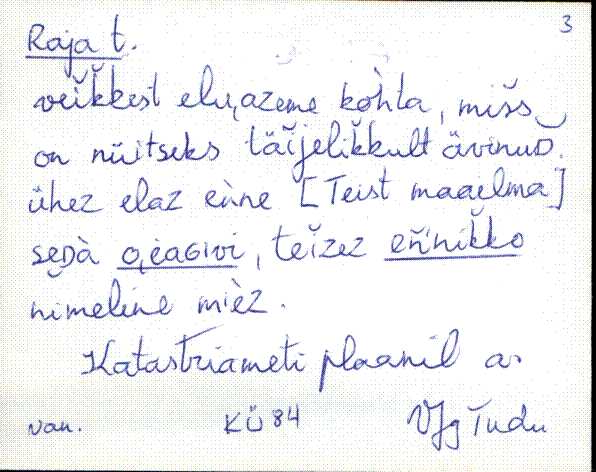 3
Raja t.
veĭk̆kest elu,aźeme kòhta, mišs
on nüitseks täĭjelik̆kult ävinuD̆.
ühez elaz eǹne [Teist maaelma]
sɛDà o̭eaGivi, teĭzez eńnik̆ko
nimeline mièz.
Katastriameti plaanil a.
van. KÜ 84 VJg Tudu